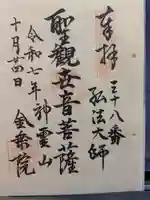 奉拝
三十八番
弘法大師
聖観世音菩薩
令和七年神霊山
十月廿四日
金乗院